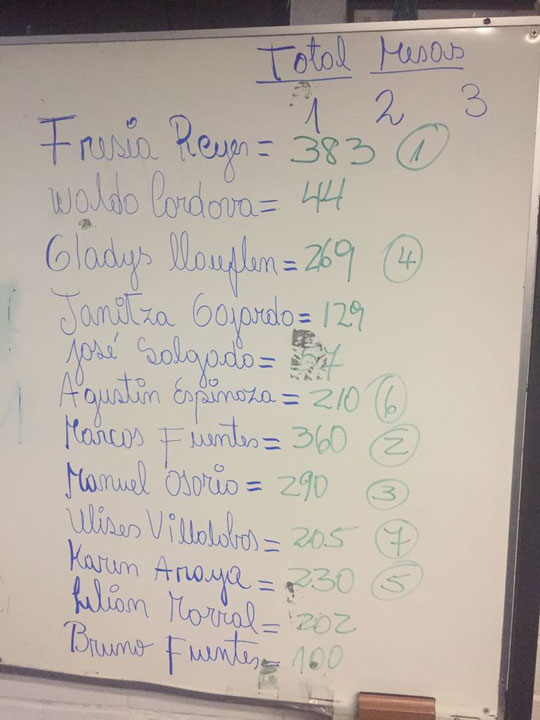 Total Mesas
1 2 3
Fresia Reyes = 383 ①
Waldo Cordova = 44
Gladys Llauflen = 269 ④
Janitza Gajardo = 129
José Salgado =
Agustin Espinoza = 210 ⑥
Marcos Fuentes = 360 ②
Manuel Osorio = 290 ③
Ulises Villalobos = 205 ⑦
Karin Anaya = 230 ⑤
Lilian Morral = 202
Bruno Fuentes = 100